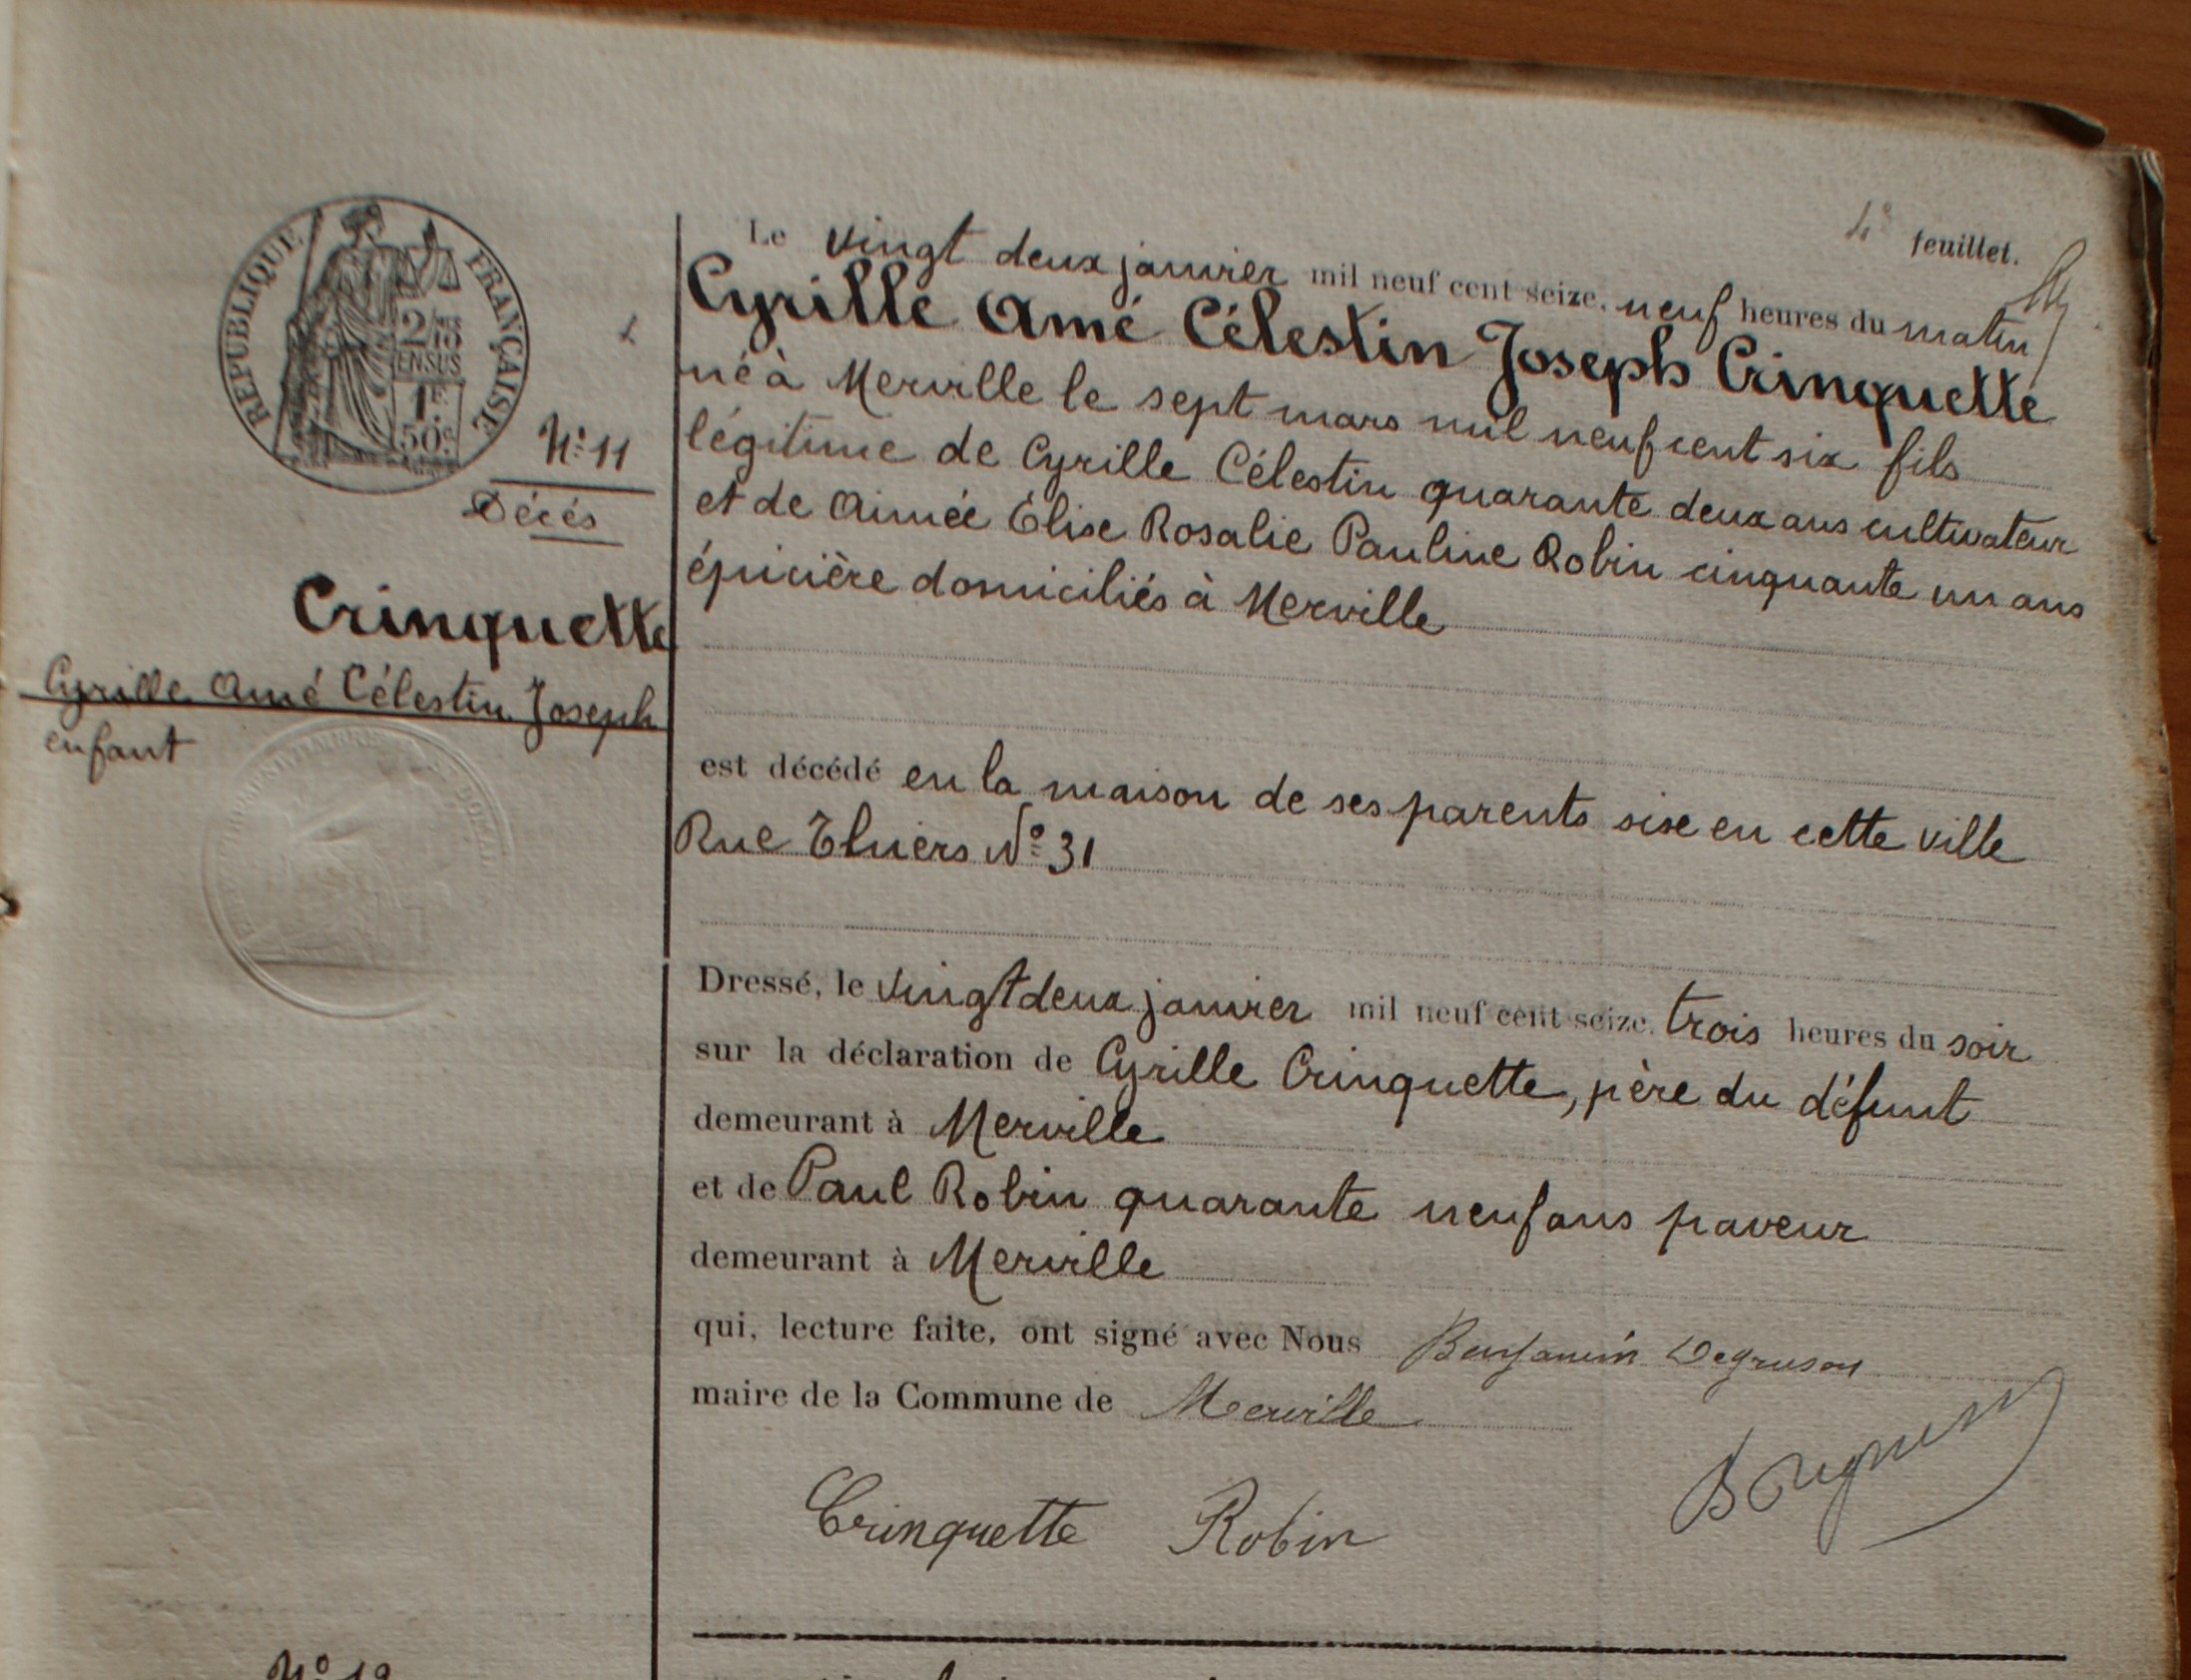 4e feuillet.
RÉPUBLIQUE FRANÇAISE
2/10
EN SUS
1F.
50c.
N° 11
Décés
Crinquette
Cyrille Amé Célestin Joseph
enfant
Le vingt deux janvier mil neuf cent seize. neuf heures du matin
Cyrille Amé Célestin Joseph Crinquette
né à Merville le sept mars mil neuf cent six fils
légitime de Cyrille Célestin quarante deux ans cultivateur
et de Aimée Élise Rosalie Pauline Robin cinquante un ans
épicière domiciliés à Merville
est décédé en la maison de ses parents sise en cette ville
Rue Thiers N° 31
Dressé, le vingt deux janvier mil neuf cent seize. trois heures du soir
sur la déclaration de Cyrille Crinquette, père du défunt
demeurant à Merville
et de Paul Robin quarante neuf ans paveur
demeurant à Merville
qui, lecture faite, ont signé avec Nous Benjamin Degruson
maire de la Commune de Merville
Crinquette Robin
N° 12